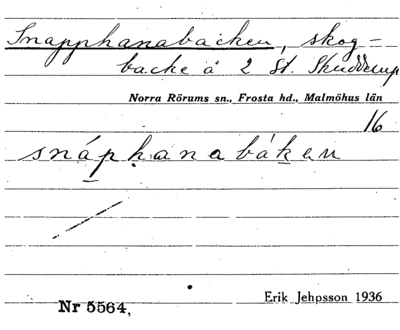 Snapphanabacken, skog-
backe å 2 St. Skudderup
Norra Rörums sn., Frosta hd., Malmöhus län
16
snáphanabáken
Nr 5564,
Erik Jehpsson 1936